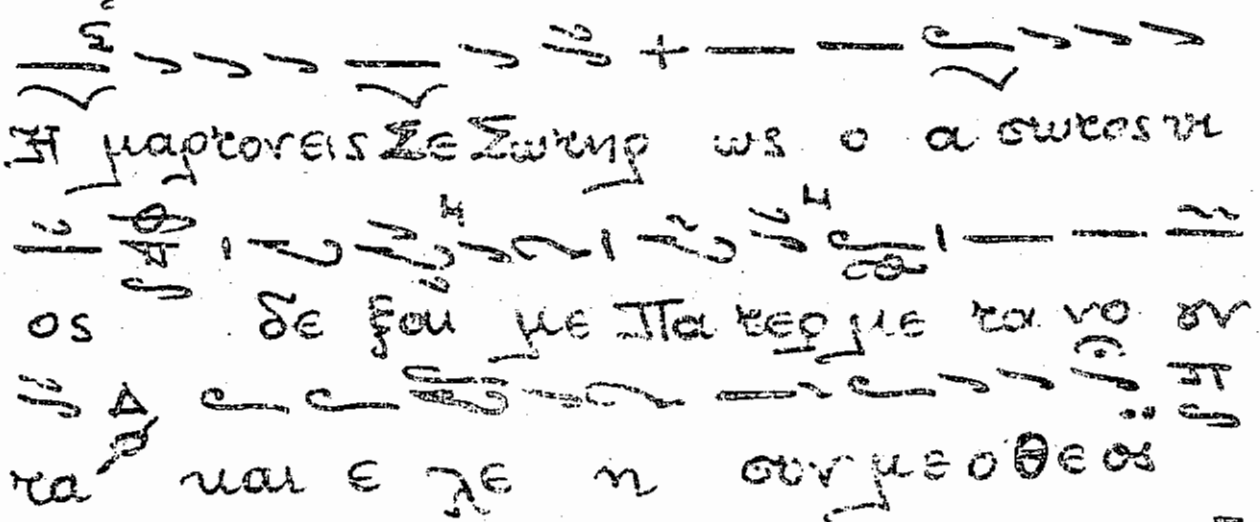 Η μαρτονεις Σε Σωτηρ ως ο α σωτος υι
ος δε ξαι με Πα τερ με τα νο ουν
τα και ε λε η σον με ο Θε ος